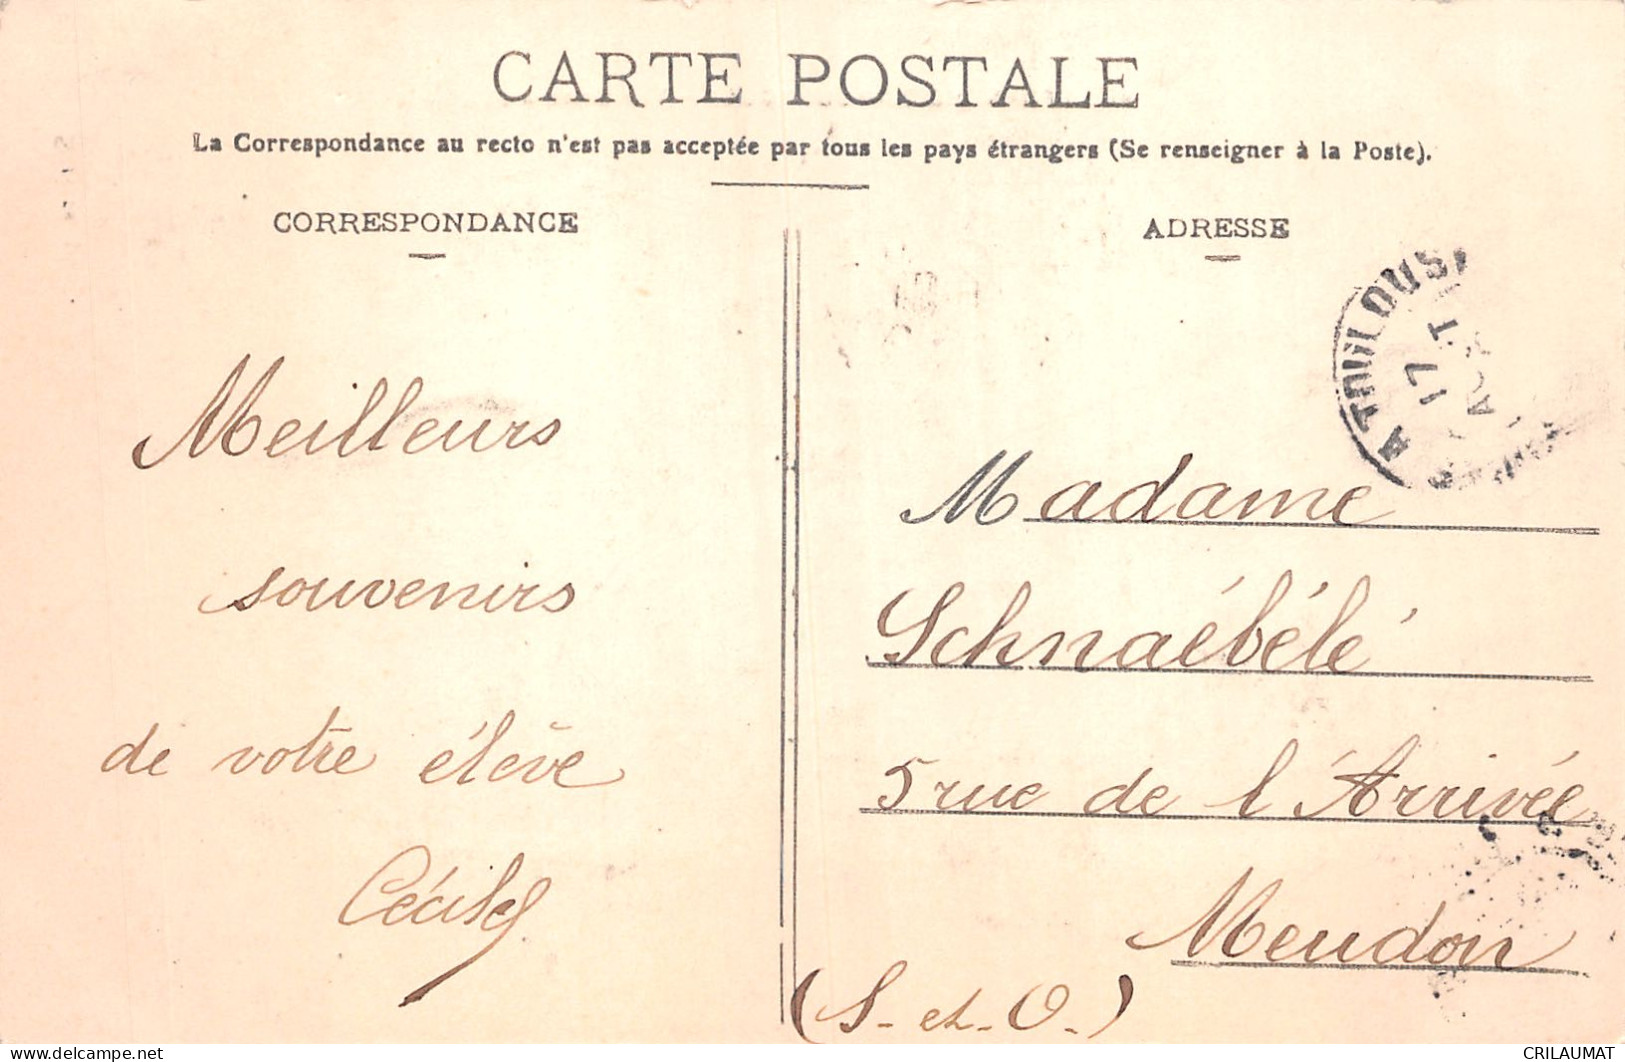 CARTE POSTALE
La Correspondance au recto n'est pas acceptée par tous les pays étrangers (Se renseigner à la Poste).
CORRESPONDANCE
Meilleurs
souvenirs
de votre élève
Cécile
ADRESSE
A TOULOUS
17
Madame
Schnaébélé
5 rue de l'Arrivée
Meudon
(S.-et-O.)
delcampe.net
CRILAUMAT